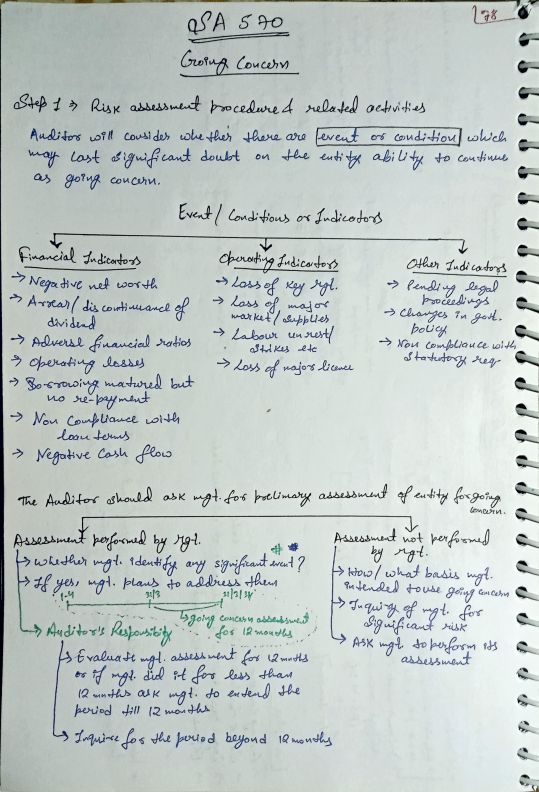 SA 570
178
Going Concern
Step 1 → Risk assessment procedure & related activities
Auditor will consider whether there are event or condition which
may cast significant doubt on the entity ability to continue
as going concern.
Event / Conditions or Indicators
Financial Indicators
→ Negative net worth
→ Arrear / discontinuance of
dividend
→ Adversal financial ratios
→ Operating losses
→ Borrowing matured but
no re-payment
→ Non Compliance with
loan terms
→ Negative Cash flow
Operating Indicators
→ Loss of key mgt.
→ Loss of major
market / supplies
→ Labour unrest/
strikes etc
→ Loss of major licence
Other Indicators
→ Pending legal
proceedings
→ Changes in govt.
policy
→ Non compliance with
statutory req.
The Auditor should ask mgt. for prelimary assessment of entity for going
concern.
Assessment performed by mgt.
→ Whether mgt. identify any significant event?
→ If yes, mgt. plans to address them
1-4 31/3 31/3/24
→ going concern assessment
for 12 months
→ Auditor's Responsibity
→ Evaluate mgt. assessment for 12 mnths
or if mgt. did it for less than
12 mnths ask mgt. to extend the
period till 12 months
→ Inquire for the period beyond 12 months
Assessment not performed
by mgt.
→ How / what basis mgt.
intended to use going concern
→ Inquiry of mgt. for
significant risk
→ Ask mgt. to perform its
assessment